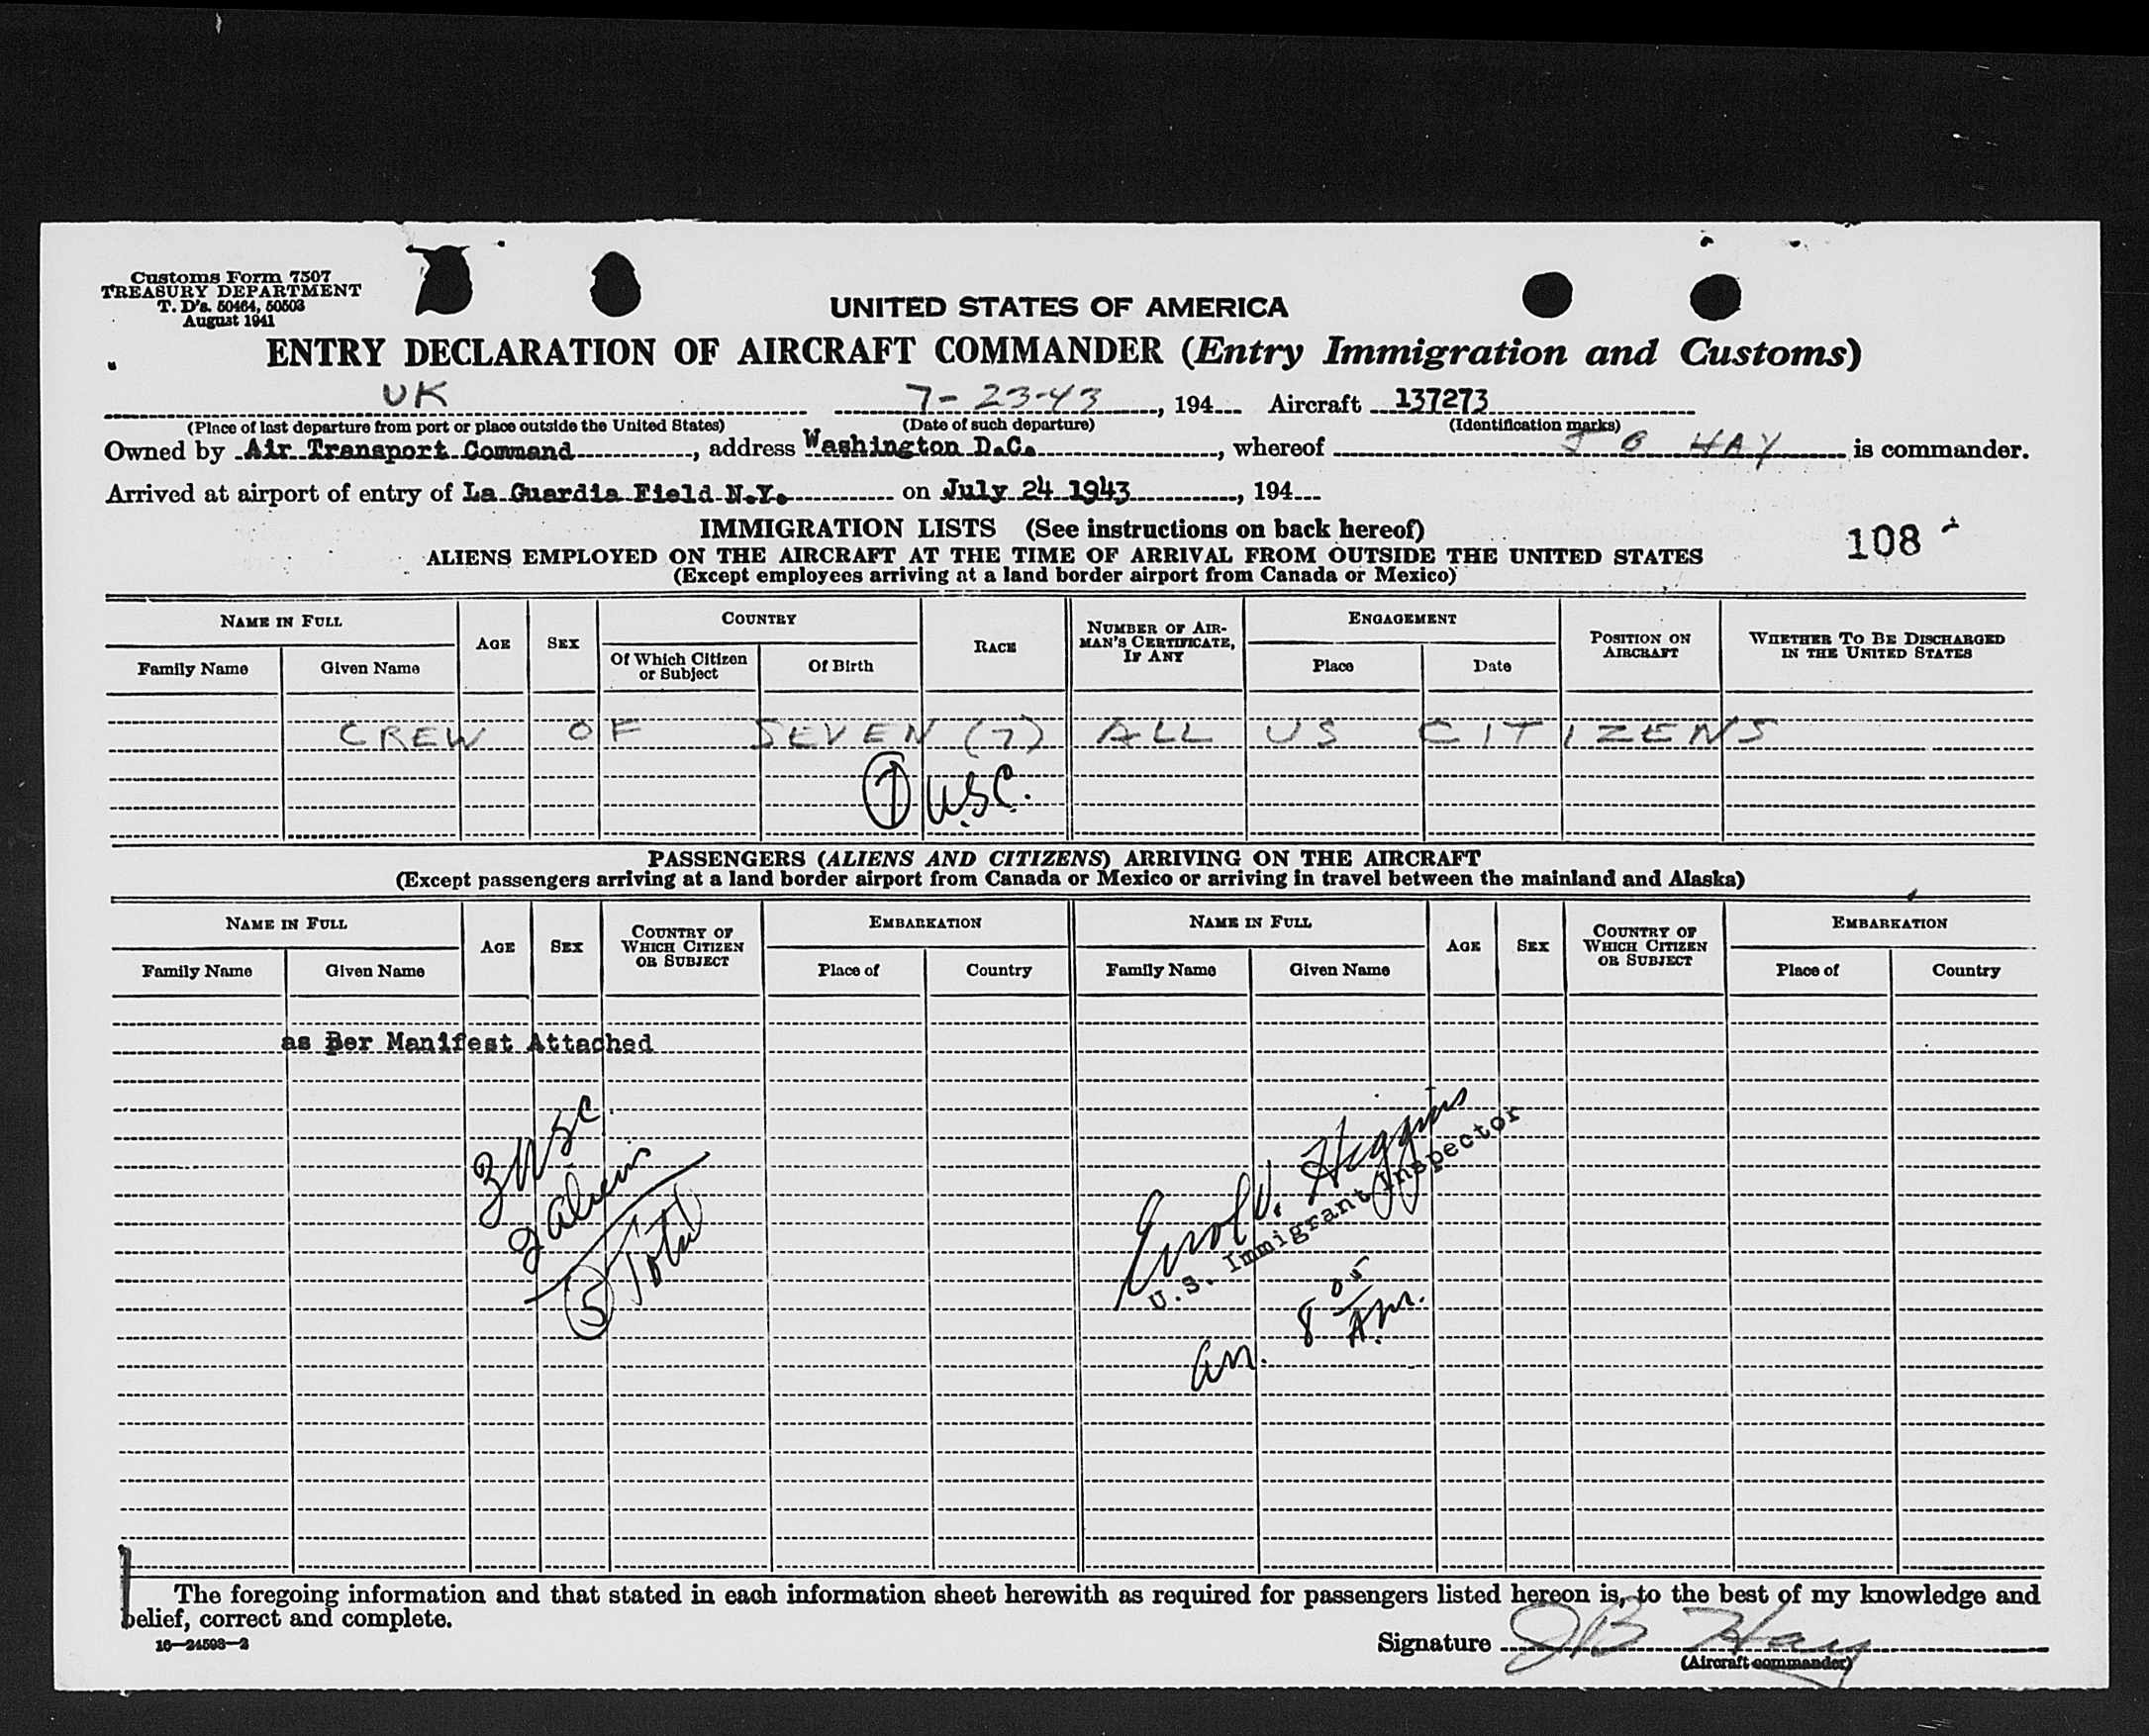 Customs Form 7507
TREASURY DEPARTMENT
T. D's. 50464, 50503
August 1941
UNITED STATES OF AMERICA
ENTRY DECLARATION OF AIRCRAFT COMMANDER (Entry Immigration and Customs)
UK 7-23-43, 194 Aircraft 137273
(Place of last departure from port or place outside the United States) (Date of such departure) (Identification marks)
Owned by Air Transport Command, address Washington D.C., whereof J B HAY is commander.
Arrived at airport of entry of La Guardia Field N.Y. on July 24 1943, 194
IMMIGRATION LISTS (See instructions on back hereof)
108
ALIENS EMPLOYED ON THE AIRCRAFT AT THE TIME OF ARRIVAL FROM OUTSIDE THE UNITED STATES
(Except employees arriving at a land border airport from Canada or Mexico)
NAME IN FULL AGE SEX COUNTRY RACE NUMBER OF AIRMAN'S CERTIFICATE, IF ANY ENGAGEMENT POSITION ON AIRCRAFT WHETHER TO BE DISCHARGED IN THE UNITED STATES
Family Name Given Name Of Which Citizen or Subject Of Birth Place Date
CREW OF SEVEN (7) ALL US CITIZENS
7 U.S.C.
PASSENGERS (ALIENS AND CITIZENS) ARRIVING ON THE AIRCRAFT
(Except passengers arriving at a land border airport from Canada or Mexico or arriving in travel between the mainland and Alaska)
NAME IN FULL AGE SEX COUNTRY OF WHICH CITIZEN OR SUBJECT EMBARKATION NAME IN FULL AGE SEX COUNTRY OF WHICH CITIZEN OR SUBJECT EMBARKATION
Family Name Given Name Place of Country Family Name Given Name Place of Country
as Per Manifest Attached
3 USC
2 aliens
5 Total
Higgins
U.S. Immigrant Inspector
arr. 8 05 A.m.
The foregoing information and that stated in each information sheet herewith as required for passengers listed hereon is, to the best of my knowledge and
belief, correct and complete.
16—24593—2
Signature JB Hay
(Aircraft commander)